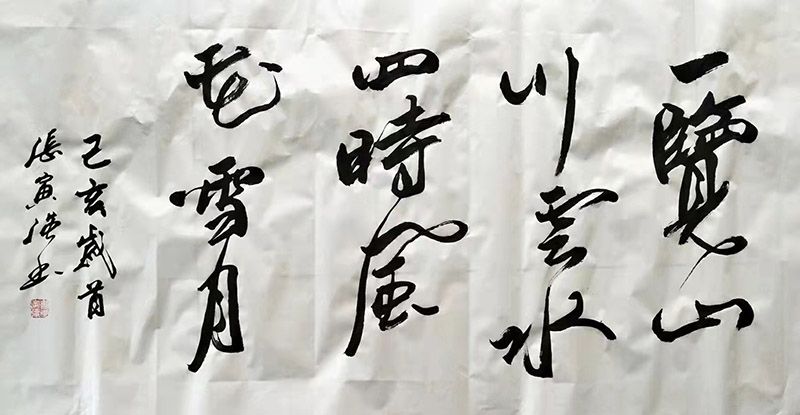 一覽山
川雲水
四時風
花雪月
己亥歲首
張寅浩書